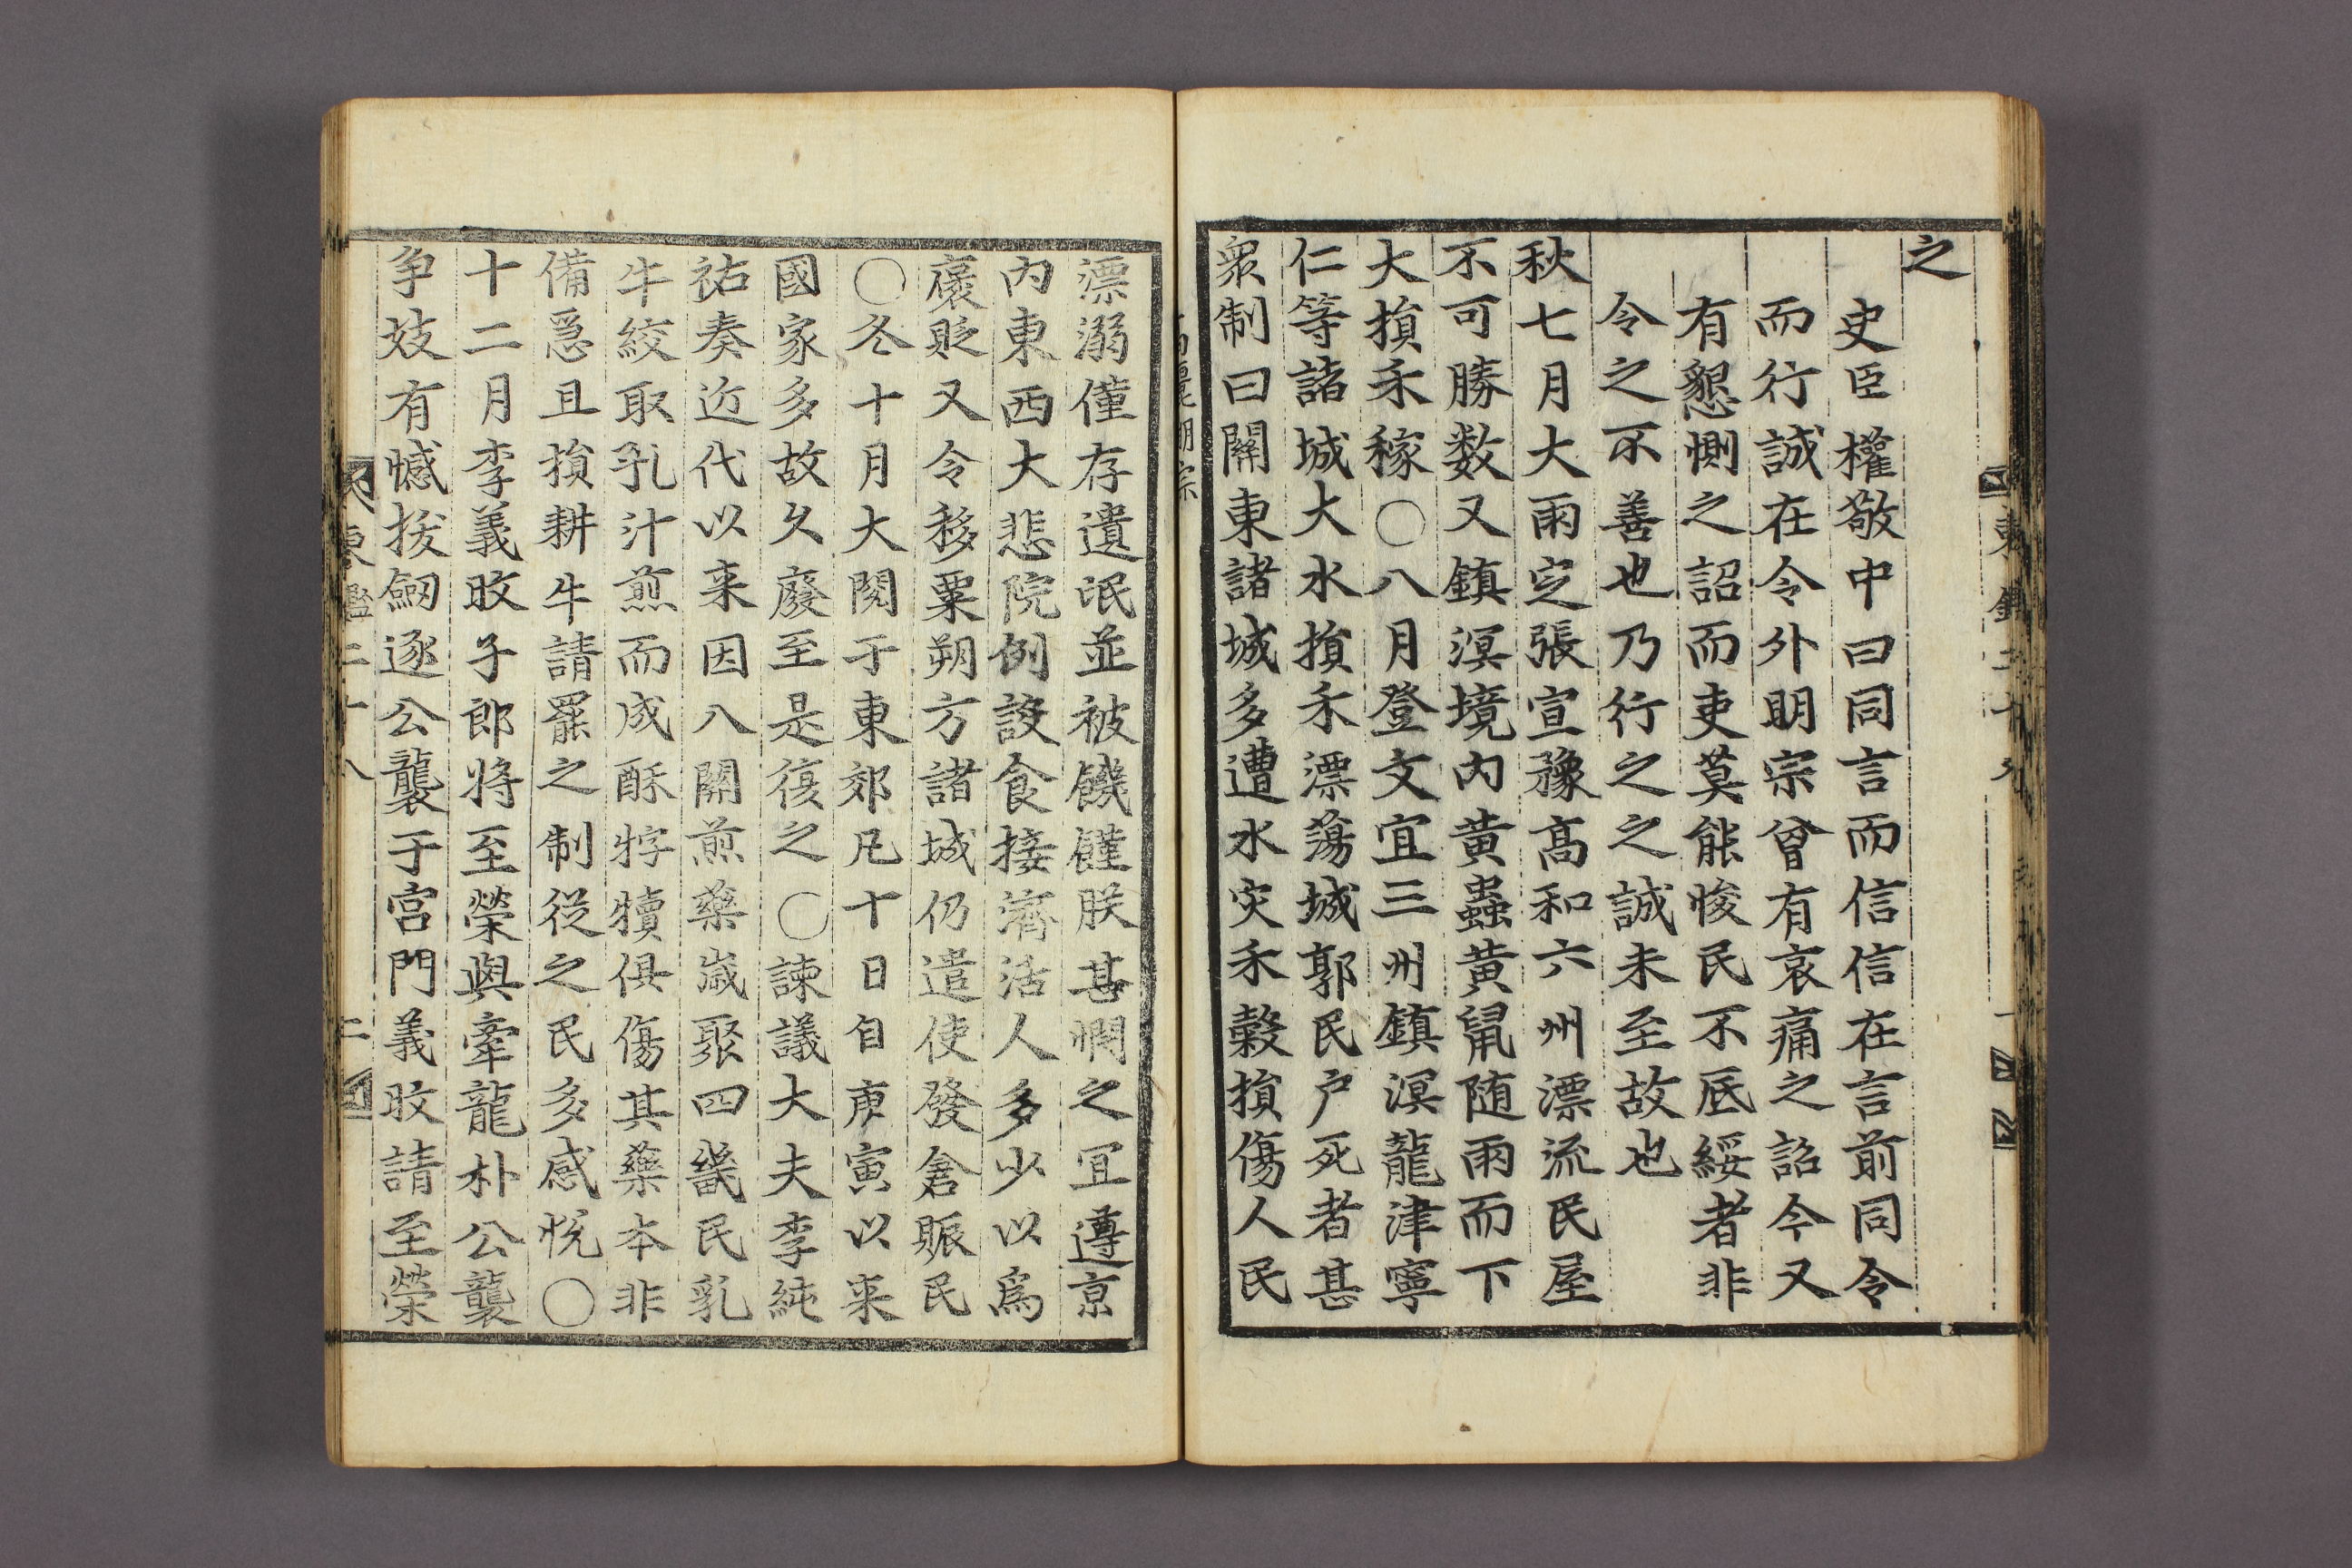 之
史臣權敬中曰同言而信信在言前同令
而行誠在令外明宗曾有哀痛之詔今又
有懇惻之詔而吏莫能悛民不底綏者非
令之不善也乃行之之誠未至故也
秋七月大雨定張宣豫高和六州漂流民屋
不可勝数又鎮溟境内黃蟲黃鼠随雨而下
大損禾稼○八月登文宜三州鎮溟龍津寧
仁等諸城大水損禾漂蕩城郭民户死者甚
衆制曰關東諸城多遭水灾禾穀損傷人民
漂溺僅存遺氓並被饑饉朕甚憫之冝遵京
内東西大悲院例設食接濟活人多少以爲
褒貶又令移粟朔方諸城仍遣使發倉賑民
○冬十月大閱于東郊凡十日自庚寅以来
國家多故久廢至是復之○諫議大夫李純
祐奏近代以来因八關煎藥歲聚四畿民乳
牛絞取乳汁煎而成酥牸犢俱傷其藥本非
備急且損耕牛請罷之制從之民多感悅○
十二月李義旼子郎將至榮與牽龍朴公襲
争妓有憾拔劒逐公襲于宫門義旼請至榮
東鑑二十八
二